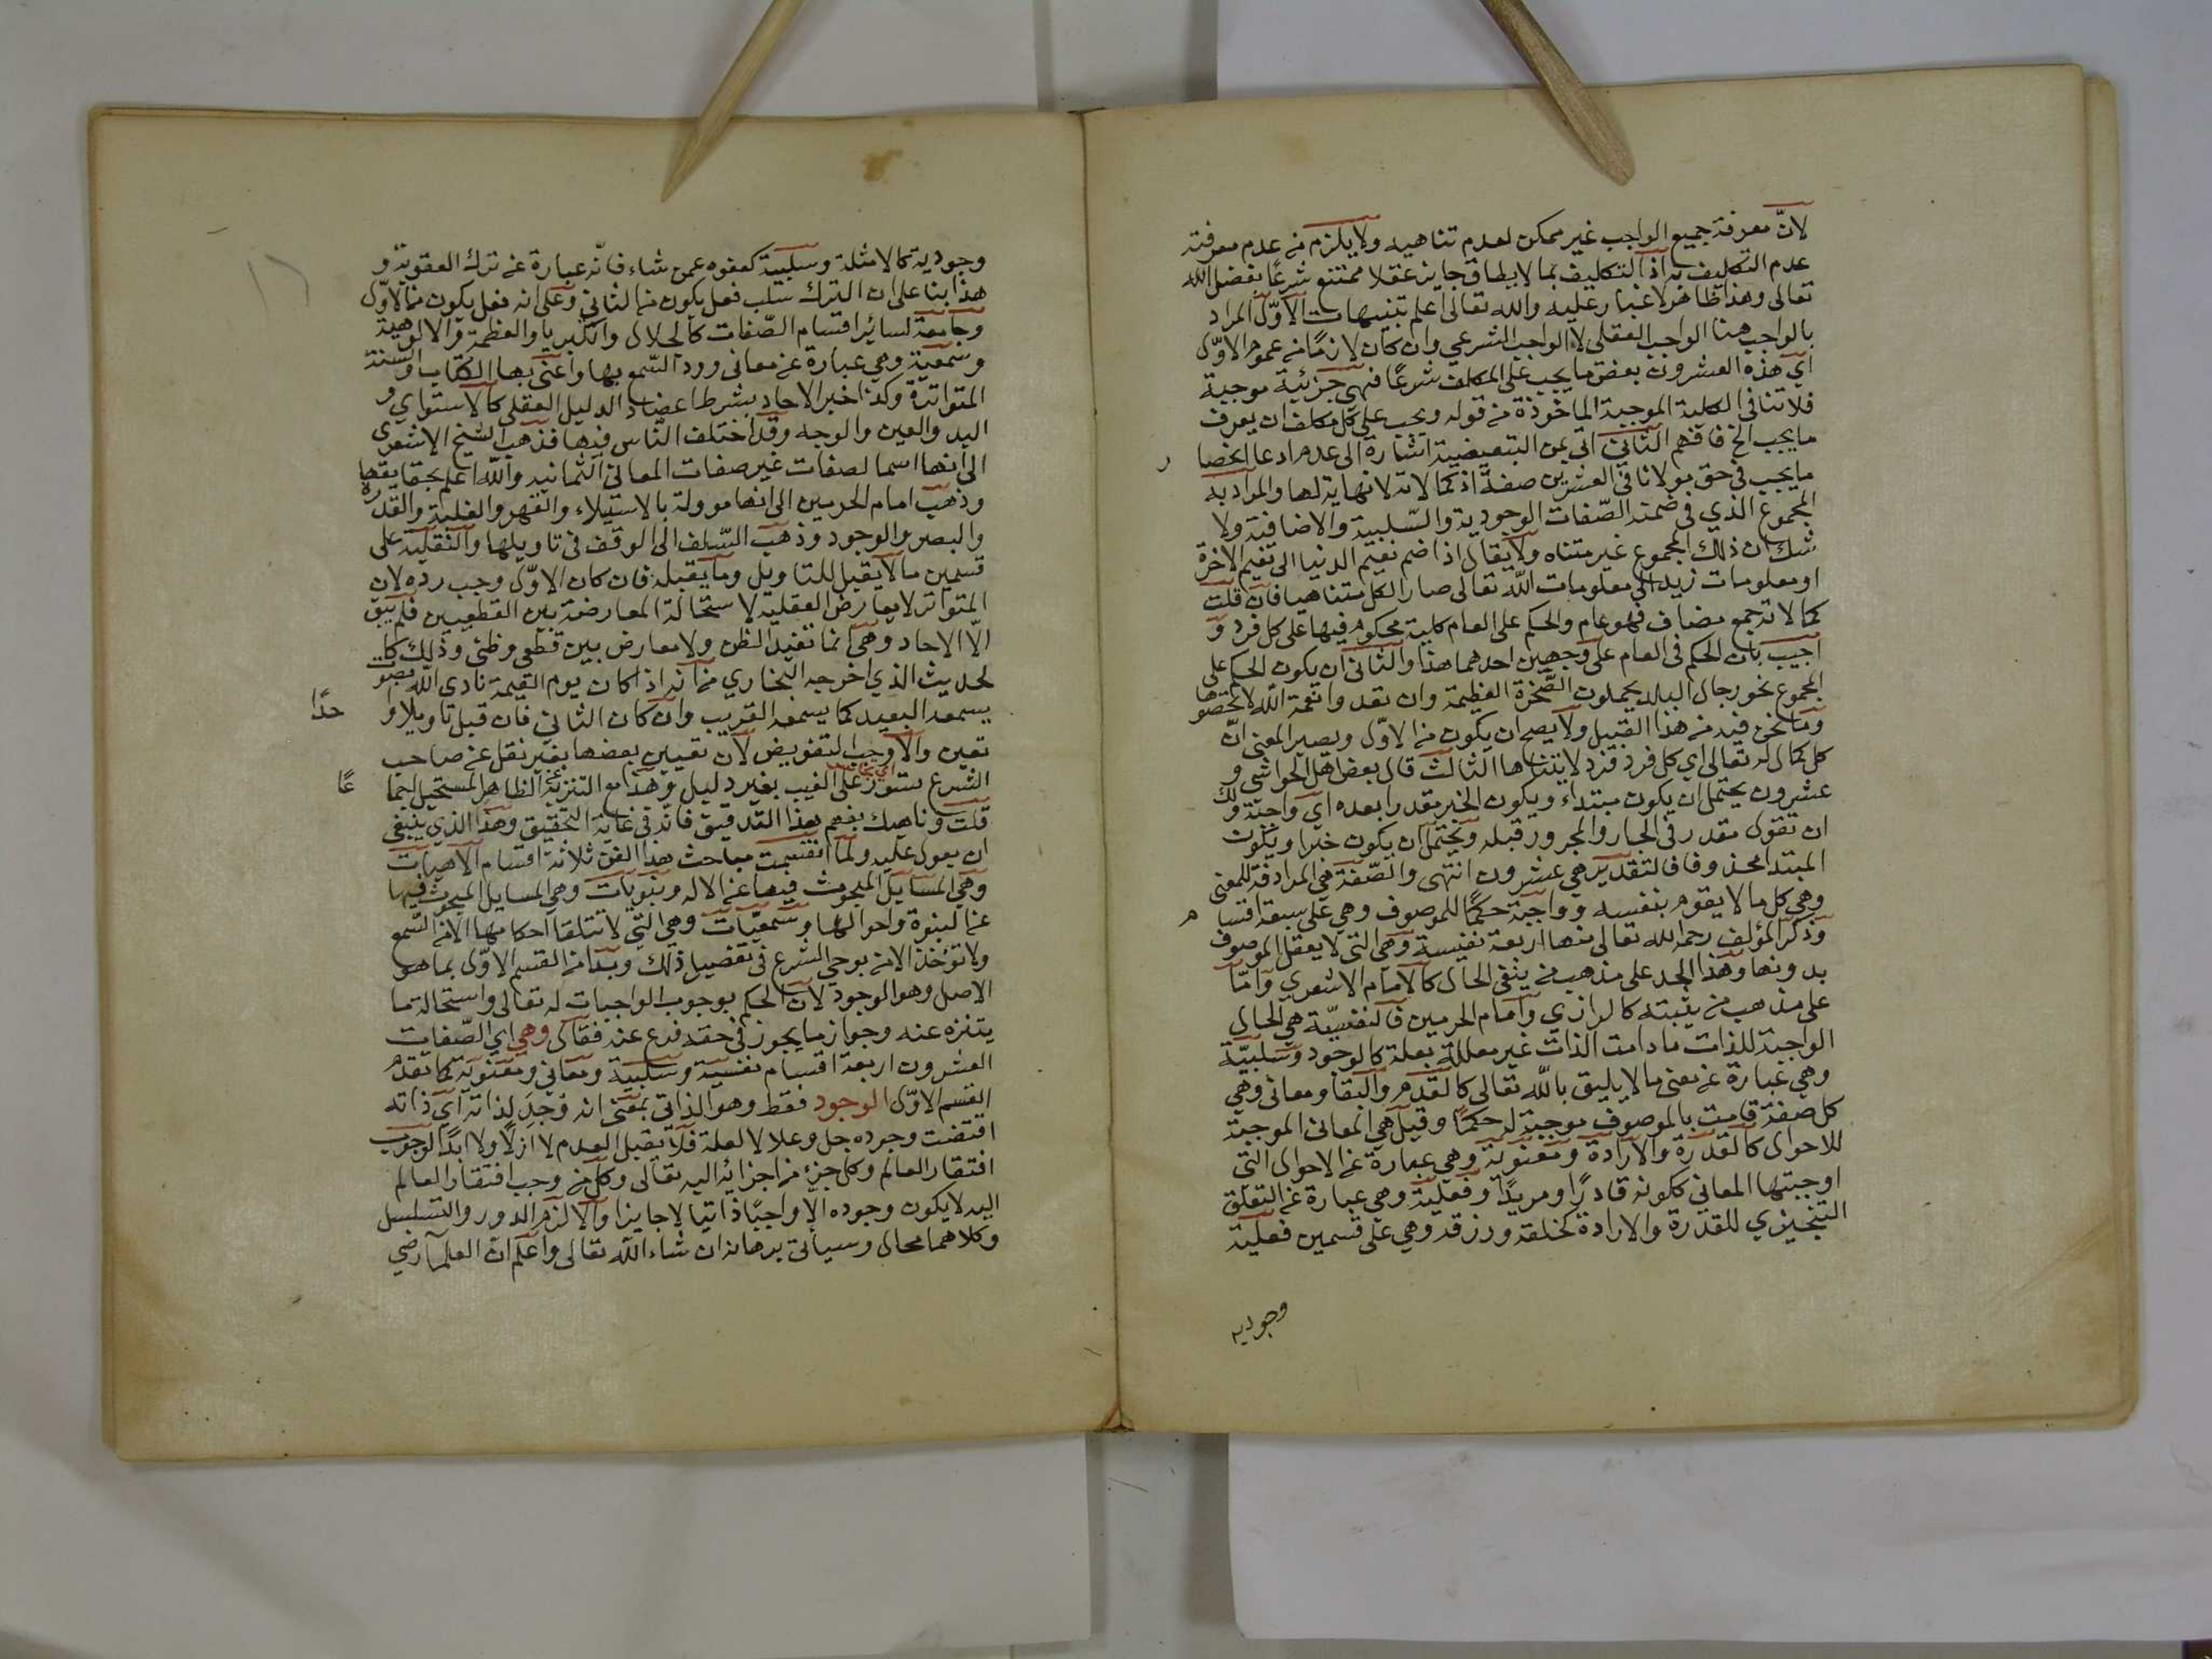 لانّ معرفة جميع الواجب غير ممكن لعدم تناهيه ولا يلزم من عدم معرفته
عدم التكليف به اذ التكليف بما لا يطاق جايز عقلا ممتنع شرعًا بفضل الله
تعالى وهذا ظاهر لا غبار عليه والله تعالى اعلم تنبيهات الاوّل المراد
بالواجب هنا الواجب العقلى لا الواجب الشرعي وان كان لازمًا من عموم الاوّل
اي هذه العشرون بعض ما يجب على المكلف شرعًا فهى جزئية موجبة
فلا تنافى الكلية الموجبة الماخوذة من قوله ويجب على كل مكلف ان يعرف
ما يجب الخ فافهم الثاني اتى بمن التبعيضية اشارة الى عدم ادعا انحصار
ما يجب في حق مولانا في العشرين صفة اذ كمالاته لا نهاية لها والمراد به
المجموع الذي في ضمنه الصّفات الوجودية والسّلبية والاضافية ولا
شك ان ذلك المجموع غير متناه ولا يقال اذا ضم نعيم الدنيا الى نعيم الاخرة
او معلومات زيد الى معلومات الله تعالى صار الكل متناهيا فان قلت
كمالاته جمع مضاف فهو عام والحكم على العام كلية محكوم فيها على كل فرد و
اجيب بان الحكم في العام على وجهين احدهما هذا والثاني ان يكون الحكم على
المجموع نحو رجال البلد يحملون الصّخرة العظيمة وان تعدوا نعمة الله لا تحصوها
وما نحن فيه من هذا القبيل ولا يصح ان يكون من الاوّل ويصير المعنى انّ
كل كمال له تعالى اي كل فرد فرد لا يتناها الثالث قال بعض اهل الحواشي و
عشرون يحتمل ان يكون مبتداء ويكون الخبر مقدر ا بعده اي واجبة ولك
ان تقول مقدر في الجار والمجرور قبله ويحتمل ان يكون خبرا ويكون
المبتدا محذوفا فالتقدير هي عشرون انتهى والصّفة هي المرادفة للمعنى
وهي كل ما لا يقوم بنفسه وواجبة حكمًا للموصوف وهي على سبعة اقسام
وذكر المؤلف رحمه الله تعالى منها اربعة نفسية وهي التى لا يعقل الموصوف
بدونها وهذا الحد على مذهب من ينفى الحال كالامام الاشعري وامّا
على مذهب من يثبته كالرازي وامام الحرمين فالنفسيّة هي الحال
الواجبة للذات ما دامت الذات غير معللة بعلة كالوجود وسلبيّة
وهي عبارة عن نفي ما لا يليق بالله تعالى كالقدم والبقا ومعاني وهي
كل صفة قامت بالموصوف موجبة له حكمًا وقيل هي المعاني الموجبة
للاحوال كالقدرة والارادة ومعنوية وهي عبارة عن الاحوال التى
اوجبتها المعاني ككونه قادرًا ومريدًا وفعلية وهي عبارة عن التعلق
التنجيزي للقدرة والارادة كخلقه ورزقه وهي على قسمين فعلية
وجودية
وجودية كالامثلة وسلبية كعفوه عمن شاء فانّه عبارة عن ترك العقوبة و
هذا بنا على ان الترك سلب فعل يكون من الثاني وعلى انه فعل يكون من الاوّل
وجامعة لسائر اقسام الصّفات كالجلال والكبريا والعظمة والالوهية
وسمعية وهي عبارة عن معانى ورد السّمع بها واعنى بها الكتاب والسنة
المتواترة وكذا خبر الاحاد بشرط اعضاد الدليل العقلي كالاستواي و
اليد والعين والوجه وقد اختلف النّاس فيها فذهب الشيخ الاشعري
الى انها اسما لصفات غير صفات المعانى الثمانيه والله اعلم بحقايقها
وذهب امام الحرمين الى انها موولة بالاستيلاء والقهر والغلبة والقدرة
والبصر والوجود وذهب السّلف الى الوقف فى تاويلها والنقلية على
قسمين ما لا يقبل للتاويل وما يقبله فان كان الاوّل وجب رده لان
المتواتر لا يعارض العقلية لاستحالة المعارضة بين القطعيين فلم يبق
الّا الاحاد وهي انما تفيد الظن ولا معارض بين قطعي وظني وذلك كا
لحديث الذي اخرجه البخاري من انه اذا كان يوم القيمة نادى الله بصوت
يسمعه البعيد كما يسمعه القريب وان كان الثانى فان قبل تاويلا واحدًا
تعين والا وجب التفويض لان تعيين بعضها بغير نقل عن صاحب
الشرع تسوّر على الغيب بغير دليل وهذا مع التنزيه عن الظاهر المستحيل اجماعًا
قلت وناهيك بفهم هذا التدقيق فانه في غاية التحقيق وهذا الذي ينبغى
ان يعول عليه ولما انقسمت مباحث هذا الفن ثلاثة اقسام الاهيات
وهي المسايل المبحوث فيها عن الاله ونبويات وهي المسايل المبحوث فيها
عن النبوة واحوالها وسمعيّات وهي التي لا تتلقا احكامها الا من السّمع
ولا تؤخذ الا من بوحي الشرع في تفصيل ذلك وبدا من القسم الاوّل بما هو
الاصل وهو الوجود لان الحكم بوجوب الواجبات له تعالى واستحالة ما
يتنزه عنه وجواز ما يجوز في حقه فرع عنه فقال وهي اي الصّفات
العشرون اربعة اقسام نفسية وسلبية ومعاني ومعنوية كما تقدم
القسم الاوّل الوجود فقط وهو الذاتي بمعنى انه وُجِدَ لذاته اي ذاته
اقتضت وجوده جل وعلا لا لعلة فلا يقبل العدم لا ازلًا ولا ابدًا لوجوب
افتقار العالم وكل جزء من اجزائه اليه تعالى وكل من وجب افتقار العالم
اليه لا يكون وجوده الا واجبًا ذاتيا لا جايزا والا لزم الدور والتسلسل
وكلاهما محال وسيأتى برهانه ان شاء الله تعالى واعلم ان العلما رضي